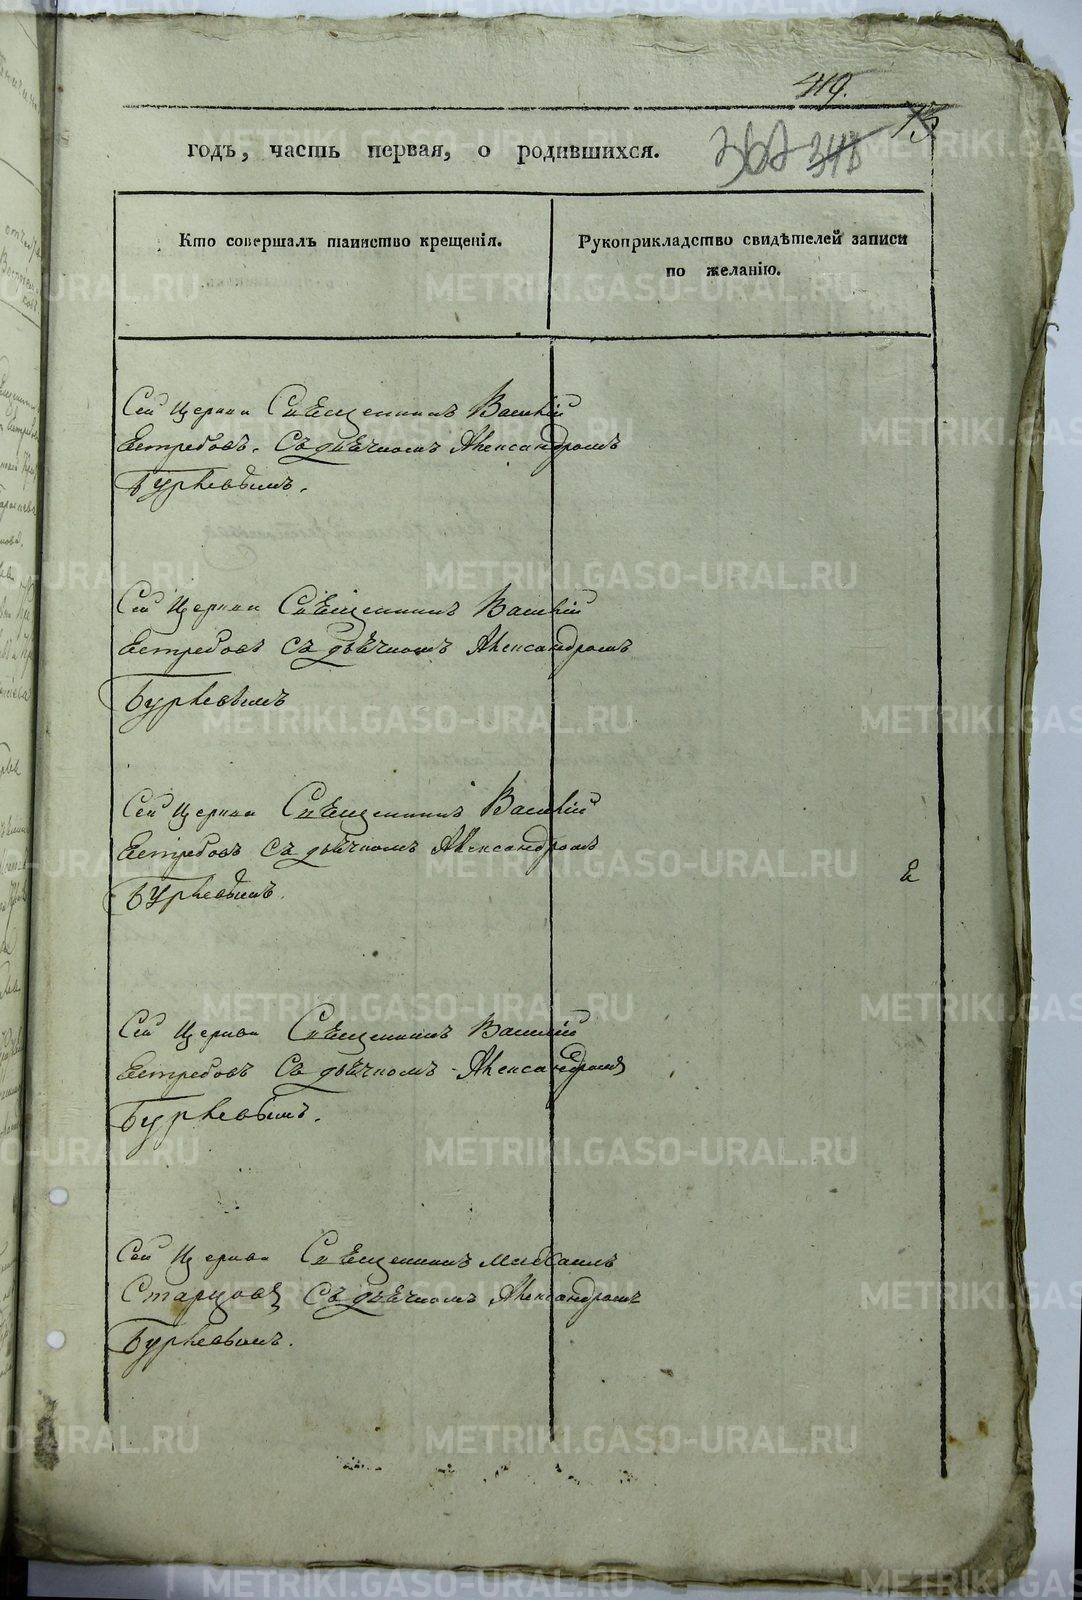 419.
годъ, часть первая, о родившихся. 367 348 13
Кто совершалъ таинство крещенія.
Рукоприкладство свидѣтелей записи
по желанію.
Сей Церкви Священникъ Василій
Ястребовъ. Съ дьячкомъ Александромъ
Бурлевымъ.
Сей Церкви Священникъ Василій
Ястребовъ Съ дьячкомъ Александромъ
Бурлевымъ
Сей Церкви Священникъ Василій
Ястребовъ Съ дьячкомъ Александромъ
Бурлевымъ.
Сей Церкви Священникъ Василій
Ястребовъ Съ дьячкомъ Александромъ
Бурлевымъ.
Сей Церкви Священникъ Михаилъ
Старцовъ Съ дьячкомъ Александромъ
Бурлевымъ.
METRIKI.GASO-URAL.RU